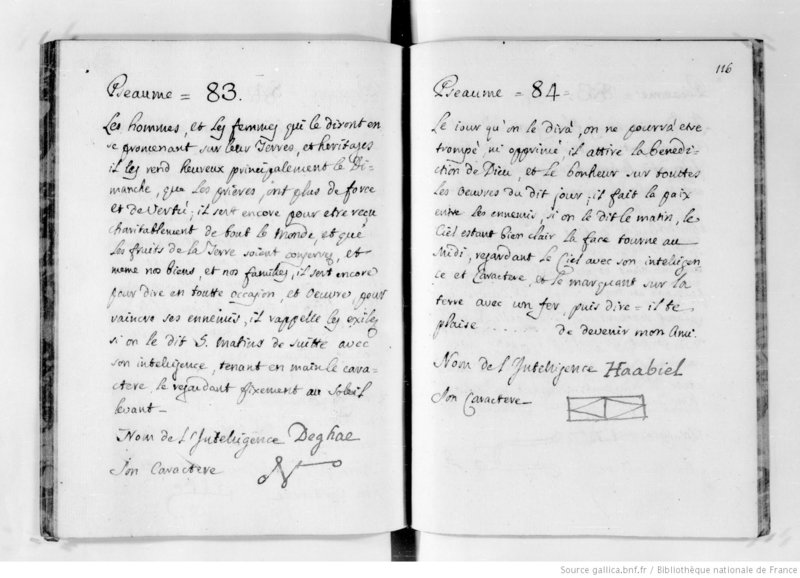 Pseaume = 83.
Les hommes, et les femmes qui le diront en
se promenant sur leur Terres, et heritages
il les rend heureux principalement le Di-
manche, que les prières, ont plus de force
et de Vertú; il sert encore pour etre reçu
charitablement de tout le Monde, et que
les fruits de la Terre soient conservés, et
meme nos biens, et nos familles, il sert encore
pour dire en toutte occasion, et Oeuvre, pour
vaincre ses ennemis, il rappelle les exilés
si on le dit 5. Matins de suitte avec
son intelligence, tenant en main le cara-
ctere, le regardant fixement au Soleil
levant-
Nom de l'Intelligence Deghae
Son Caractere
116
Pseaume = 84=
Le jour qu'on le dira, on ne pourra etre
trompé, ni opprimé, il attire la benedi-
ction de Dieu, et le bonheur sur touttes
les Oeuvres du dit jour; il fait la paix
entre les ennemis, si on le dit le matin, le
Ciel estant bien clair la face tourne au
Midi, regardant le Ciel avec son intelligen
ce et Caractere, et le marquant sur la
terre avec un fer, puis dire = il te
plaise ..... de devenir mon Ami.
Nom de l'Intelligence Haabiel
Son Caractere
Source gallica.bnf.fr / Bibliothèque nationale de France